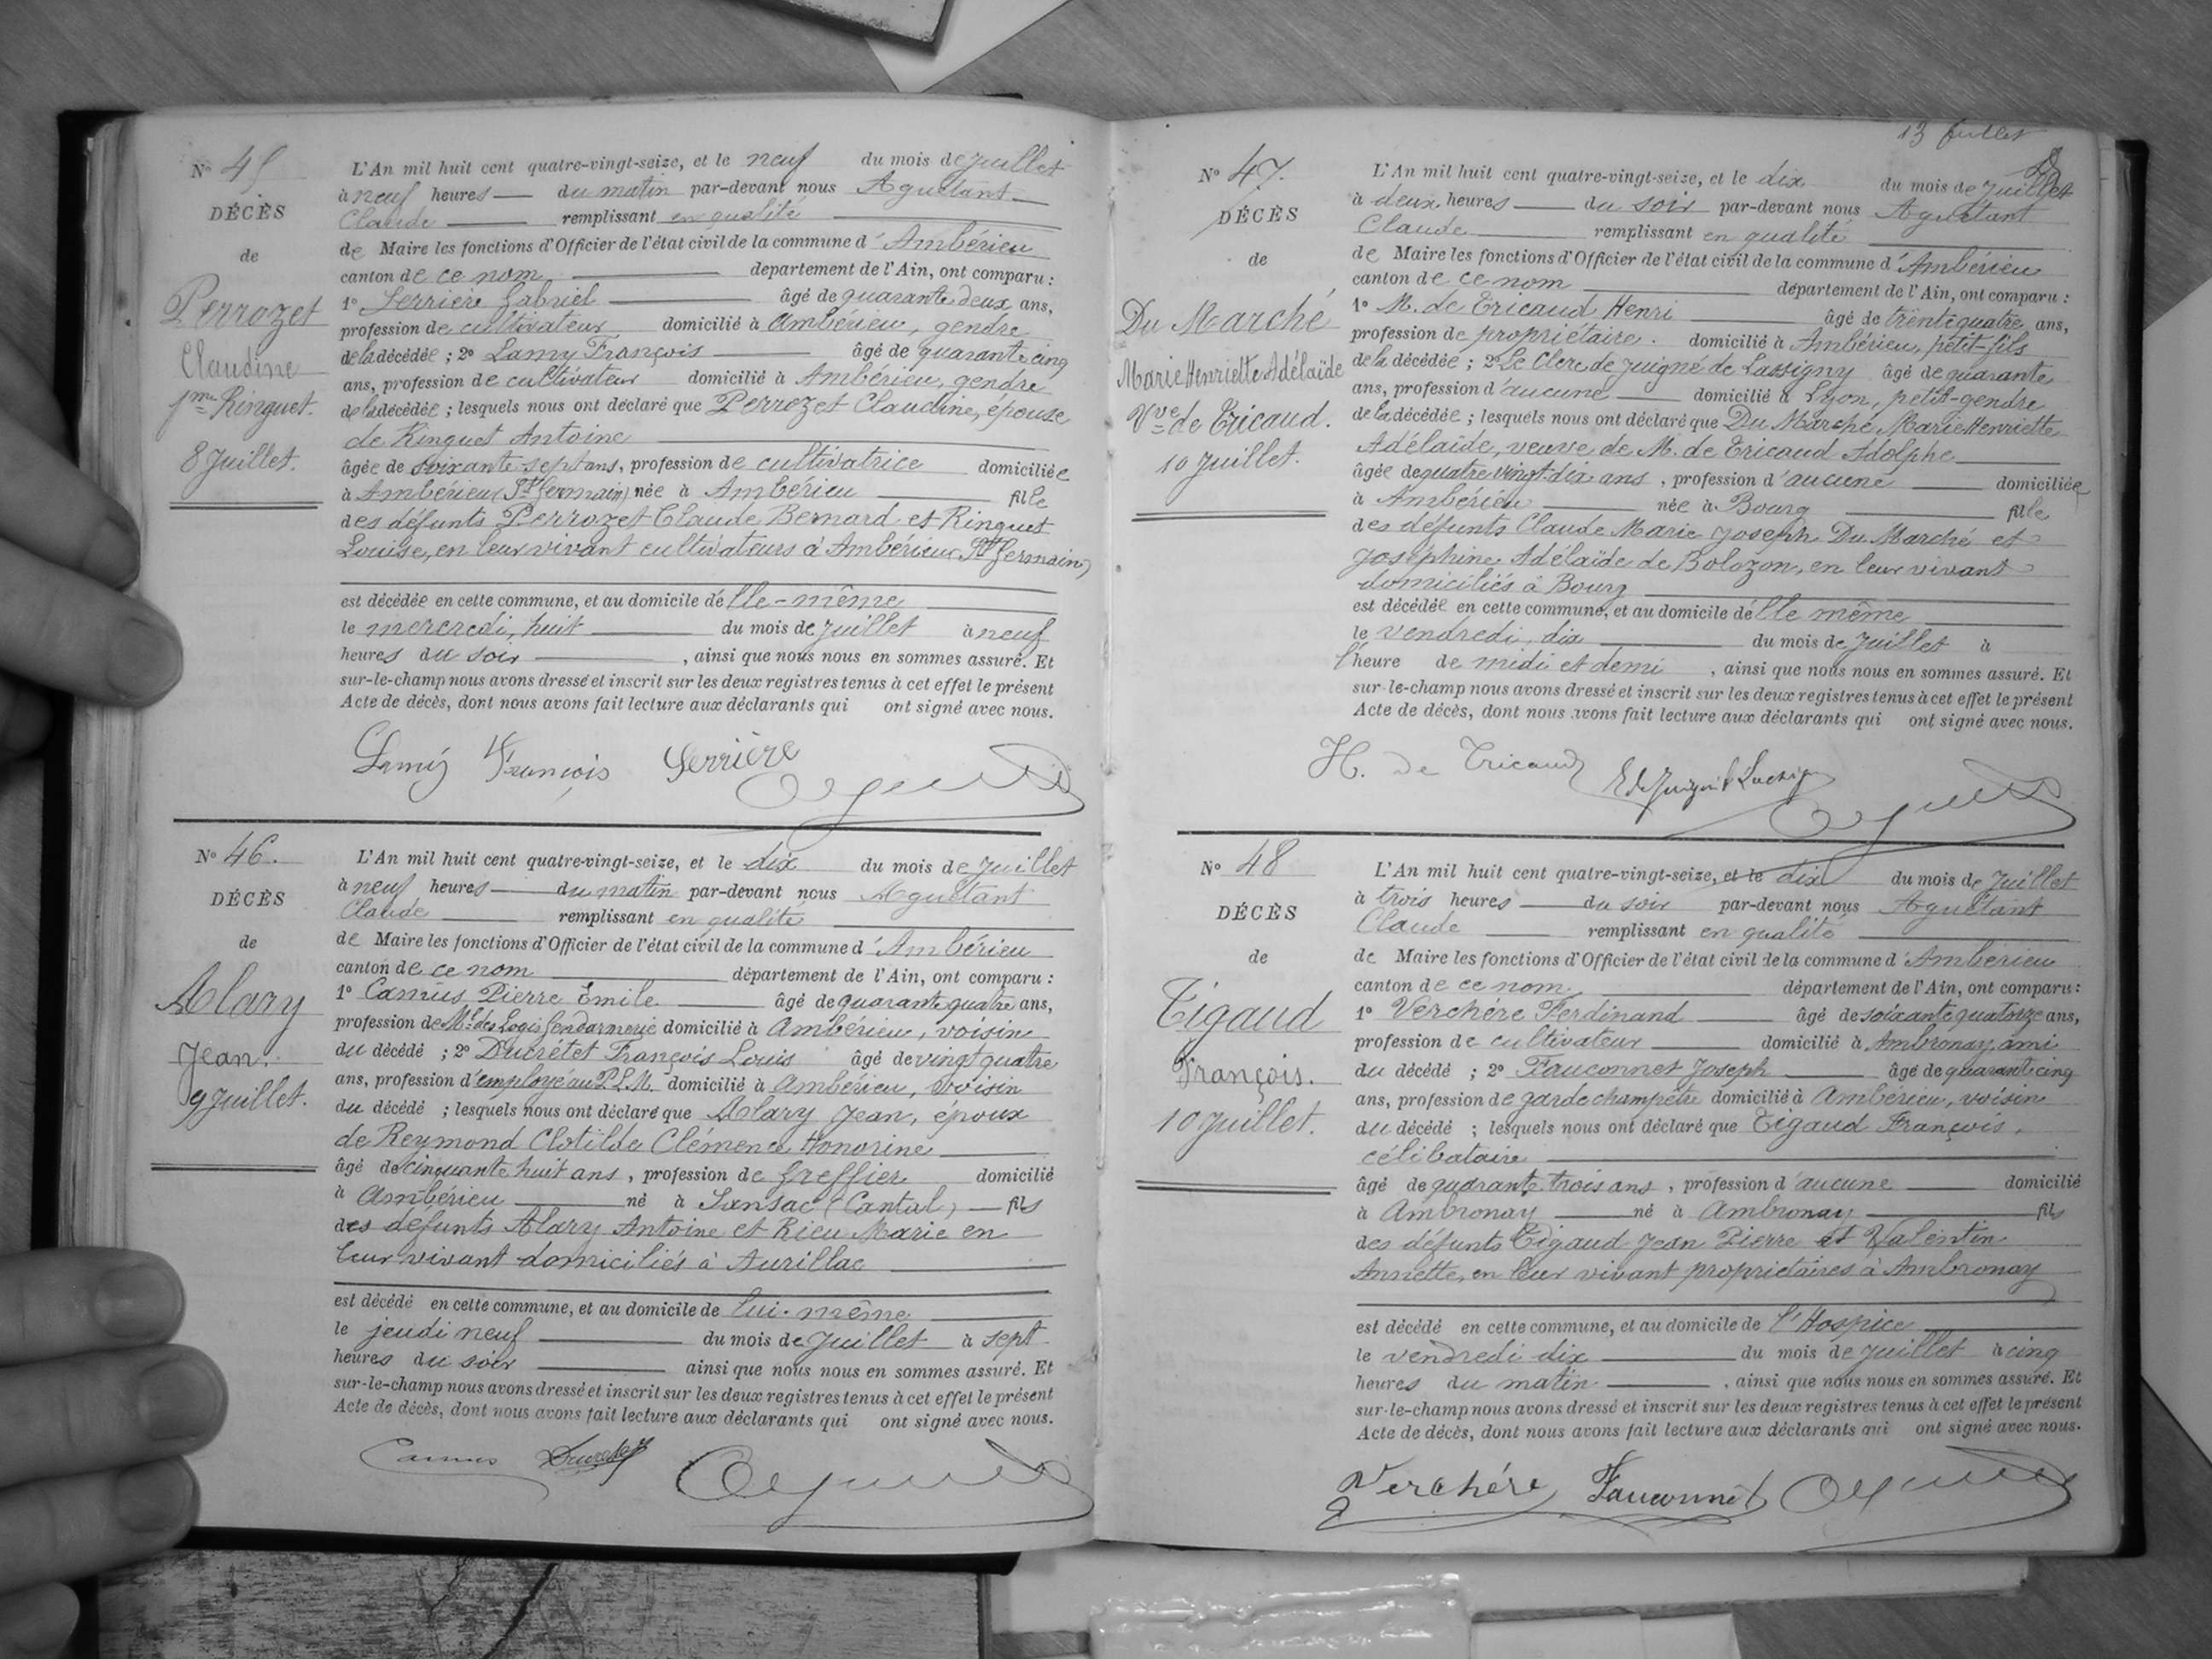 N° 45
DÉCÈS
de
Perrozet
Claudine
fme Ringuet.
8 Juillet.
L'An mil huit cent quatre-vingt-seize, et le neuf du mois de juillet
à neuf heures du matin par-devant nous Aguétant
Claude remplissant en qualité
de Maire les fonctions d'Officier de l'état civil de la commune d'Ambérieu
canton de ce nom département de l'Ain, ont comparu :
1° Serrière Gabriel âgé de quarante deux ans,
profession de cultivateur domicilié à Ambérieu, gendre
de la décédée ; 2° Lamy François âgé de quarante cinq
ans, profession de cultivateur domicilié à Ambérieu, gendre
de la décédée ; lesquels nous ont déclaré que Perrozet Claudine, épouse
de Ringuet Antoine
âgée de soixante sept ans, profession de cultivatrice domiciliée
à Ambérieu (St Germain) née à Ambérieu fille
des défunts Perrozet Claude Bernard et Ringuet
Louise, en leur vivant cultivateurs à Ambérieu (St Germain)
est décédée en cette commune, et au domicile d'elle-même
le mercredi, huit du mois de juillet à neuf
heures du soir , ainsi que nous nous en sommes assuré. Et
sur-le-champ nous avons dressé et inscrit sur les deux registres tenus à cet effet le présent
Acte de décès, dont nous avons fait lecture aux déclarants qui ont signé avec nous.
Lamy François Serrière
N° 46.
DÉCÈS
de
Alary
Jean.
9 Juillet.
L'An mil huit cent quatre-vingt-seize, et le dix du mois de juillet
à neuf heures du matin par-devant nous Aguétant
Claude remplissant en qualité
de Maire les fonctions d'Officier de l'état civil de la commune d'Ambérieu
canton de ce nom département de l'Ain, ont comparu :
1° Camus Pierre Emile âgé de quarante quatre ans,
profession de Mal des Logis Gendarmerie domicilié à Ambérieu, voisin
du décédé ; 2° Ducrétet François Louis âgé de vingt quatre
ans, profession d'employé au P.L.M. domicilié à Ambérieu, voisin
du décédé ; lesquels nous ont déclaré que Alary Jean, époux
de Reymond Clotilde Clémence Honorine
âgé de cinquante huit ans, profession de Greffier domicilié
à Ambérieu né à Sansac (Cantal) fils
des défunts Alary Antoine et Rieu Marie en
leur vivant domiciliés à Aurillac
est décédé en cette commune, et au domicile de lui-même
le jeudi neuf du mois de juillet à sept
heures du soir ainsi que nous nous en sommes assuré. Et
sur-le-champ nous avons dressé et inscrit sur les deux registres tenus à cet effet le présent
Acte de décès, dont nous avons fait lecture aux déclarants qui ont signé avec nous.
Camus Ducrétet
13 Juillet
N° 47.
DÉCÈS
de
Du Marché
Marie Henriette Adélaïde
Vve de Tricaud.
10 Juillet.
L'An mil huit cent quatre-vingt-seize, et le dix du mois de juillet
à deux heures du soir par-devant nous Aguétant
Claude remplissant en qualité
de Maire les fonctions d'Officier de l'état civil de la commune d'Ambérieu
canton de ce nom département de l'Ain, ont comparu :
1° M. de Tricaud Henri âgé de trente quatre ans,
profession de propriétaire. domicilié à Ambérieu, petit-fils
de la décédée ; 2° Le Clerc de Juigné de Lassigny âgé de quarante
ans, profession d'aucune domicilié à Lyon, petit-gendre
de la décédée ; lesquels nous ont déclaré que Du Marché Marie Henriette
Adélaïde, veuve de M. de Tricaud Adolphe
âgée de quatre vingt-dix ans, profession d'aucune domiciliée
à Ambérieu née à Bourg fille
des défunts Claude Marie Joseph Du Marché et
Joséphine Adélaïde de Bolozon, en leur vivant
domiciliés à Bourg
est décédée en cette commune, et au domicile d'elle même
le vendredi, dix du mois de juillet à
l'heure de midi et demi , ainsi que nous nous en sommes assuré. Et
sur-le-champ nous avons dressé et inscrit sur les deux registres tenus à cet effet le présent
Acte de décès, dont nous avons fait lecture aux déclarants qui ont signé avec nous.
H. de Tricaud
N° 48
DÉCÈS
de
Tigaud
François.
10 Juillet.
L'An mil huit cent quatre-vingt-seize, et le dix du mois de juillet
à trois heures du soir par-devant nous Aguétant
Claude remplissant en qualité
de Maire les fonctions d'Officier de l'état civil de la commune d'Ambérieu
canton de ce nom département de l'Ain, ont comparu :
1° Verchère Ferdinand âgé de soixante quatorze ans,
profession de cultivateur domicilié à Ambronay, ami
du décédé ; 2° Fauconnet Joseph âgé de quarante cinq
ans, profession de garde champêtre domicilié à Ambérieu, voisin
du décédé ; lesquels nous ont déclaré que Tigaud François,
célibataire
âgé de quarante trois ans, profession d'aucune domicilié
à Ambronay né à Ambronay fils
des défunts Tigaud Jean Pierre et Valentin
Annette, en leur vivant propriétaires à Ambronay
est décédé en cette commune, et au domicile de l'Hospice
le vendredi dix du mois de juillet à cinq
heures du matin , ainsi que nous nous en sommes assuré. Et
sur-le-champ nous avons dressé et inscrit sur les deux registres tenus à cet effet le présent
Acte de décès, dont nous avons fait lecture aux déclarants qui ont signé avec nous.
Verchère Fauconnet